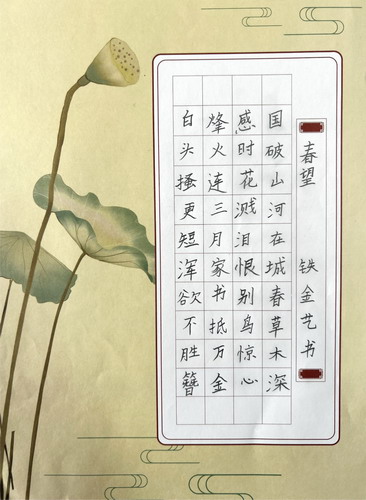 春望 铁金艺书
国破山河在城春草木深
感时花溅泪恨别鸟惊心
烽火连三月家书抵万金
白头搔更短浑欲不胜簪